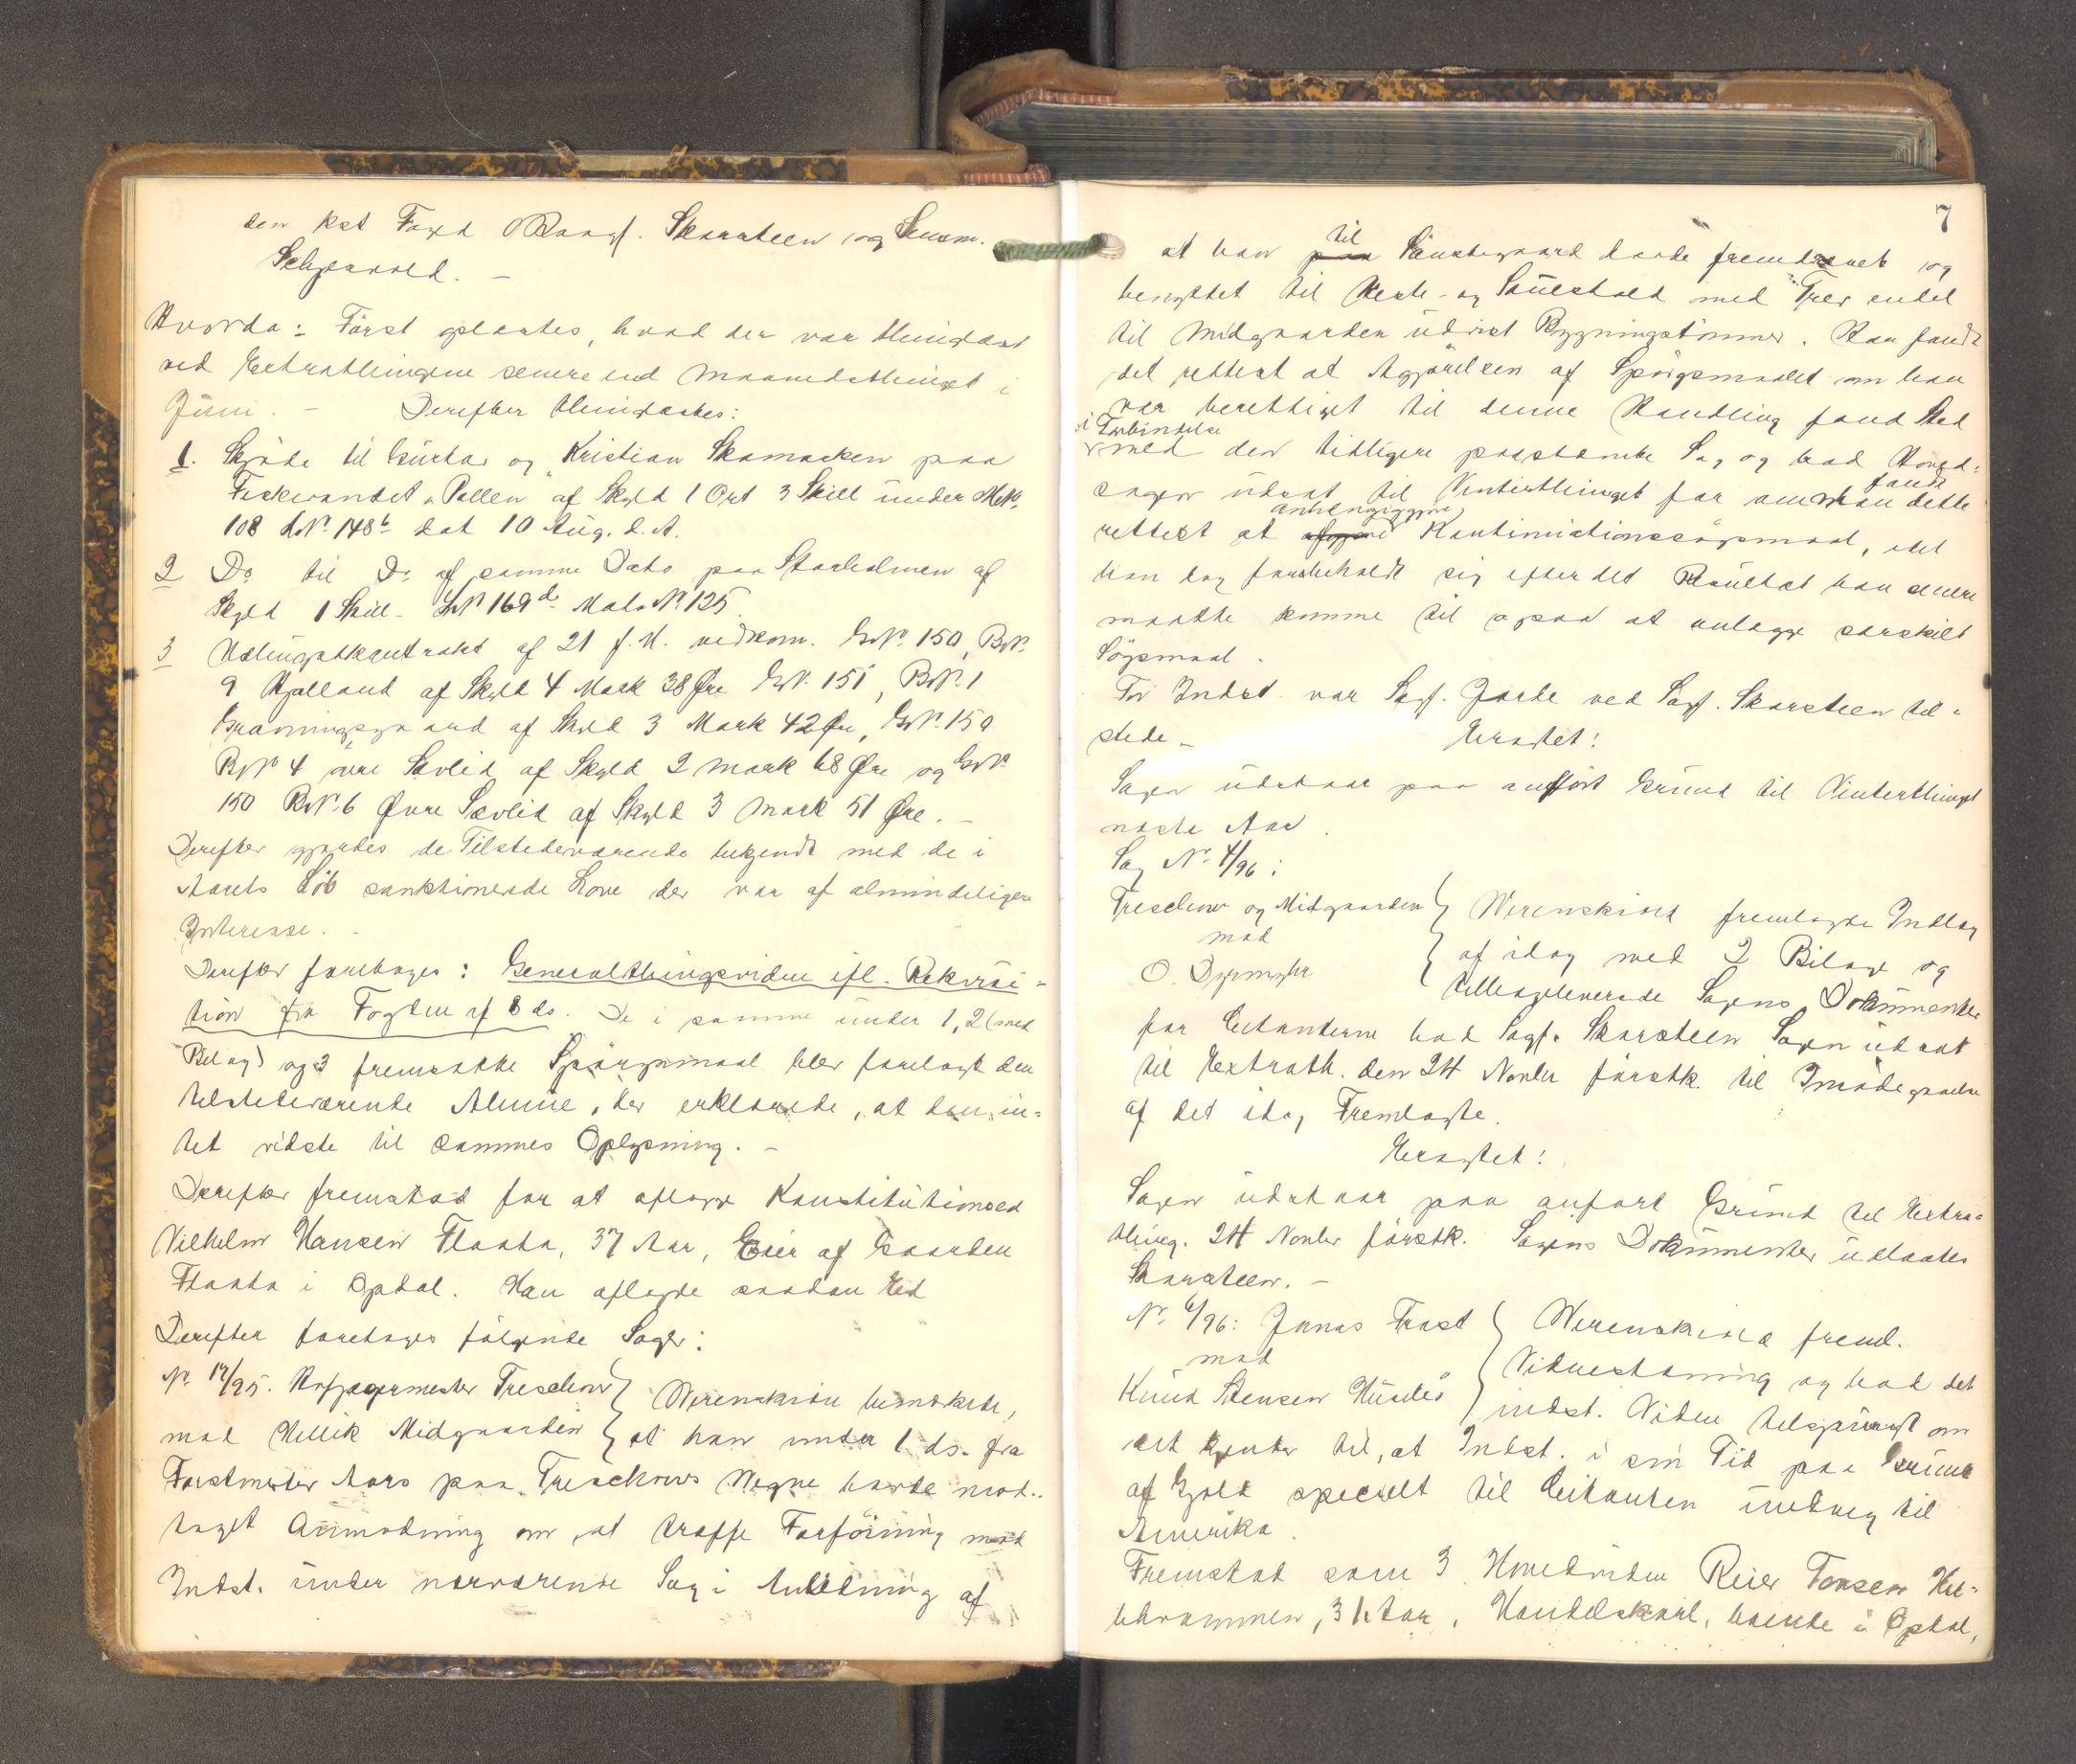 den kst Foged Sagf. Skarsteen og Lensm.
Schjeavold. —
Hvorda: Først oplæstes, hvad der var thinglæst
ved Extrathingene senere end Maanedsthinget i
Juni. — Derefter thinglæstes:
1. Skjøde til Gustav og Kristian Skamarken paa
Fiskevandet "Pollen" af Skyld 1 Ort 3 Skill under MNo.
108 LNo. 148b dat 10 Aug. d. A.
2 Do til Do af samme Dato paa Storholmen af
Skyld 1 Skill. LNo 169d MatrNo. 125.
3 Udlingskontrakt af 21 f. M. vedkom. GNo. 150, BNo.
9 Hjelland af Skyld 4 Mark 38 Øre GNo. 151, BNo. 1
Gravningsgaard af Skyld 3 Mark 42 Øre, GNo. 150
BNo 4 øvre Sævlid af Skyld 2 Mark 68 Øre og GNo.
150 BNo. 6 Øvre Sævlid af Skyld 3 Mark 51 Øre. —
Derefter gjordes de Tilstedeværende bekjendt med de i
Aarets Løb sanktionerede Love der var af almindeligere
Interesse. —
Derefter foretoges: Generalthingsvidne ifl. Rekvisi=
tion fra Fogden af 8 ds. De i samme under 1, 2 (med
Bilag) og 3 fremsatte Spørgsmaal blev forelagt den
tilstedeværende Almue, der erklærede, at den in=
tet vidste til sammes Oplysning. —
Derefter fremstod for at aflægge Konstitutionsed
Vilhelm Hansen Flaata, 37 Aar, Eier af Gaarden
Flaata i Opdal. Han aflagde saadan Ed
Derefter foretoges følgende Sager:
No. 19/95. Hofjægermester Treschow
mod Hellik Midgaarden
Werenskiold bemærkede,
at han under 1 ds. fra
Forstmester Aars paa Treschows Vegne havde mod=
taget Anmodning om at træffe Forføining mod
Indst. under nærværende Sag i Anledning af
7
at han paa til Saustegaard havde fremdrevet og
benyttet til Heste- og Sauestald med Trev endel
til Midgaarden udvist Bygningstømmer. Han fandt
det rettest at Afgjørelsen af Spørgsmaalet om han
var berettiget til denne Handling fandt Sted
i Forbindelse
med den tidligere paastævnte Sag og bad Hoved=
sagen udsat til Vinterthinget for om han fandt dette
rettest at anhængiggjøre Kontinuationssøgsmaal, idet
han dog forbeholdt sig efter det Resultat han senere
maatte komme til ogsaa at anlægge særskilt
Søgsmaal.
For Indst. var Sagf. Jarbe ved Sagf. Skarsteen til=
stede. — Eragtet:
Sagen udstaar paa anført Grund til Vinterthinget
næste Aar.
Sag No. 4/96:
Treschow og Midgaarden
mod
O.
Werenskiold fremlagde Indlæg
af idag med 2 Bilage og
tilbageleverede Sagens Dokumenter
for Citanterne bad Sagf. Skarsteen Sagen udsat
til Extrath. den 24 Novbr førstk. til Imødegaaelse
af det idag Fremlagte.
Eragtet:
Sagen udstaar paa anført Grund til Extra=
thing. 24 Novbr førstk. Sagens Dokumenter udlaantes
Skarsteen. —
No. 6/96: Jonas Frost
mod
Knud Stensen Husebø
Werenskiold freml.
Vidnestævning og bad det
indst. Vidne tilspurgt om
det kjender til, at Indst. i sin Tid paa Grund
af Gjæld specielt til Citanten undveg til
Amerika.
Fremstod som 3 Hovedvidne Reier Tovsen Hel=
lebrammen, 31 Aar, Handelskarl, boende i Opdal,